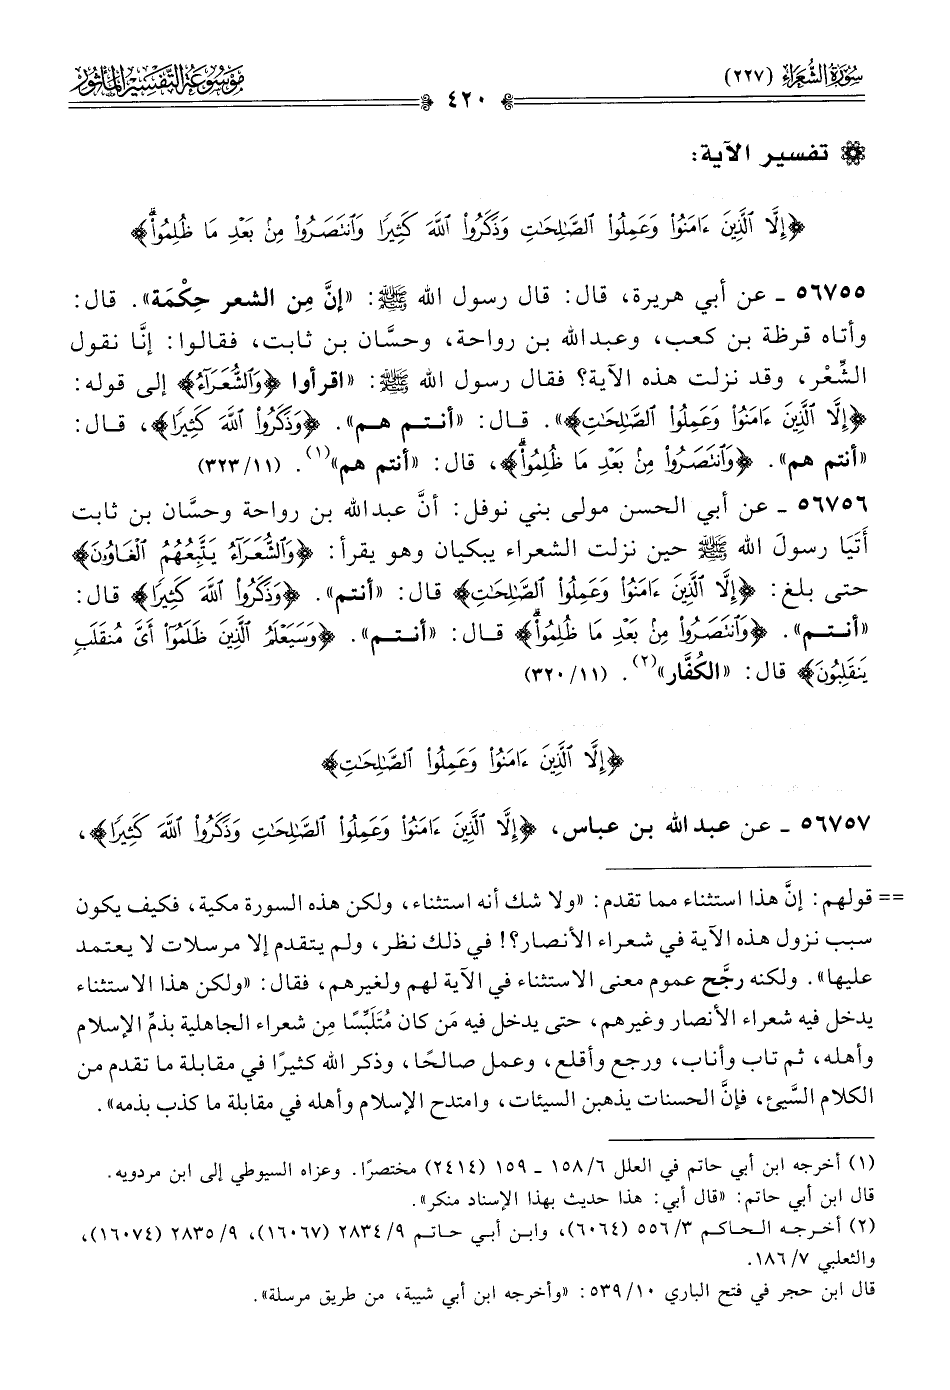 سُورَةُ الشُّعَرَاء (٢٢٧)
٤٢٠
مَوْسُوعَةُ التَّفْسِيرِ المَأْثُور
تفسير الآية:
﴿إِلَّا ٱلَّذِينَ ءَامَنُواْ وَعَمِلُواْ ٱلصَّٰلِحَٰتِ وَذَكَرُواْ ٱللَّهَ كَثِيرٗا وَٱنتَصَرُواْ مِنۢ بَعۡدِ مَا ظُلِمُواْۗ﴾
٥٦٧٥٥ ـ عن أبي هريرة، قال: قال رسول الله ﷺ: «إنَّ مِن الشعر حِكْمة». قال:
وأتاه قرظة بن كعب، وعبدالله بن رواحة، وحسَّان بن ثابت، فقالوا: إنَّا نقول
الشِّعْر، وقد نزلت هذه الآية؟ فقال رسول الله ﷺ: «اقرأوا ﴿وَٱلشُّعَرَآءُ﴾ إلى قوله:
﴿إِلَّا ٱلَّذِينَ ءَامَنُواْ وَعَمِلُواْ ٱلصَّٰلِحَٰتِ﴾». قال: «أنتم هم». ﴿وَذَكَرُواْ ٱللَّهَ كَثِيرٗا﴾، قال:
«أنتم هم». ﴿وَٱنتَصَرُواْ مِنۢ بَعۡدِ مَا ظُلِمُواْۗ﴾، قال: «أنتم هم»(١). (٣٢٣/١١)
٥٦٧٥٦ ـ عن أبي الحسن مولى بني نوفل: أنَّ عبدالله بن رواحة وحسَّان بن ثابت
أَتَيَا رسولَ الله ﷺ حين نزلت الشعراء يبكيان وهو يقرأ: ﴿وَٱلشُّعَرَآءُ يَتَّبِعُهُمُ ٱلۡغَاوُۥنَ﴾
حتى بلغ: ﴿إِلَّا ٱلَّذِينَ ءَامَنُواْ وَعَمِلُواْ ٱلصَّٰلِحَٰتِ﴾ قال: «أنتم». ﴿وَذَكَرُواْ ٱللَّهَ كَثِيرٗا﴾ قال:
«أنتم». ﴿وَٱنتَصَرُواْ مِنۢ بَعۡدِ مَا ظُلِمُواْۗ﴾ قال: «أنتم». ﴿وَسَيَعۡلَمُ ٱلَّذِينَ ظَلَمُوٓاْ أَيَّ مُنقَلَبٖ
يَنقَلِبُونَ﴾ قال: «الكُفَّار»(٢). (٣٢٠/١١)
﴿إِلَّا ٱلَّذِينَ ءَامَنُواْ وَعَمِلُواْ ٱلصَّٰلِحَٰتِ﴾
٥٦٧٥٧ ـ عن عبدالله بن عباس، ﴿إِلَّا ٱلَّذِينَ ءَامَنُواْ وَعَمِلُواْ ٱلصَّٰلِحَٰتِ وَذَكَرُواْ ٱللَّهَ كَثِيرٗا﴾،
== قولهم: إنَّ هذا استثناء مما تقدم: «ولا شك أنه استثناء، ولكن هذه السورة مكية، فكيف يكون
سبب نزول هذه الآية في شعراء الأنصار؟! في ذلك نظر، ولم يتقدم إلا مرسلات لا يعتمد
عليها». ولكنه رجَّح عموم معنى الاستثناء في الآية لهم ولغيرهم، فقال: «ولكن هذا الاستثناء
يدخل فيه شعراء الأنصار وغيرهم، حتى يدخل فيه مَن كان مُتَلَبِّسًا مِن شعراء الجاهلية بذمِّ الإسلام
وأهله، ثم تاب وأناب، ورجع وأقلع، وعمل صالحًا، وذكر الله كثيرًا في مقابلة ما تقدم من
الكلام السَّيئ، فإنَّ الحسنات يذهبن السيئات، وامتدح الإسلام وأهله في مقابلة ما كذب بذمه».
(١) أخرجه ابن أبي حاتم في العلل ١٥٨/٦ ـ ١٥٩ (٢٤١٤) مختصرًا. وعزاه السيوطي إلى ابن مردويه.
قال ابن أبي حاتم: «قال أبي: هذا حديث بهذا الإسناد منكر».
(٢) أخرجه الحاكم ٥٥٦/٣ (٦٠٦٤)، وابن أبي حاتم ٢٨٣٤/٩ (١٦٠٦٧)، ٢٨٣٥/٩ (١٦٠٧٤)،
والثعلبي ١٨٦/٧.
قال ابن حجر في فتح الباري ٥٣٩/١٠: «وأخرجه ابن أبي شيبة، من طريق مرسلة».